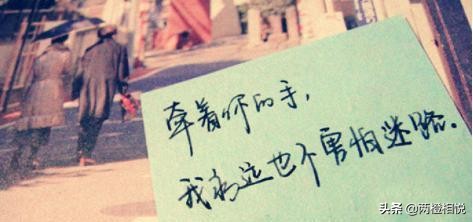 牵着你的手，
我永远也不害怕迷路．
头条 @两橙相说